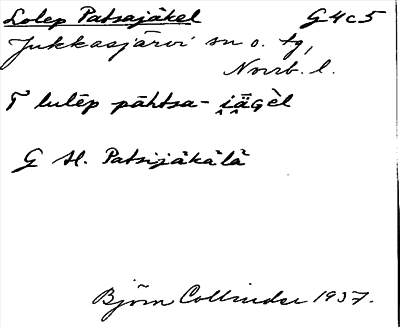 Lolep Patsajåkel G4c5
Jukkasjärvi sn o. tg,
Norrb. l.
T lulēp pāhtsa- i̯ǟgèl
G H. Patsijåkålå
Björn Collinder 1937.